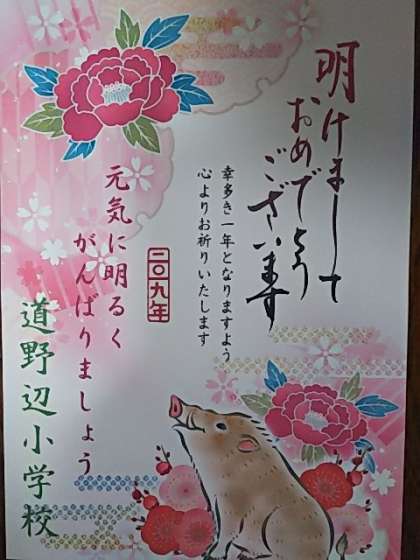 明けまして
おめでとう
ございます
幸多き一年となりますよう
心よりお祈りいたします
二〇一九年
元気に明るく
がんばりましょう
道野辺小学校